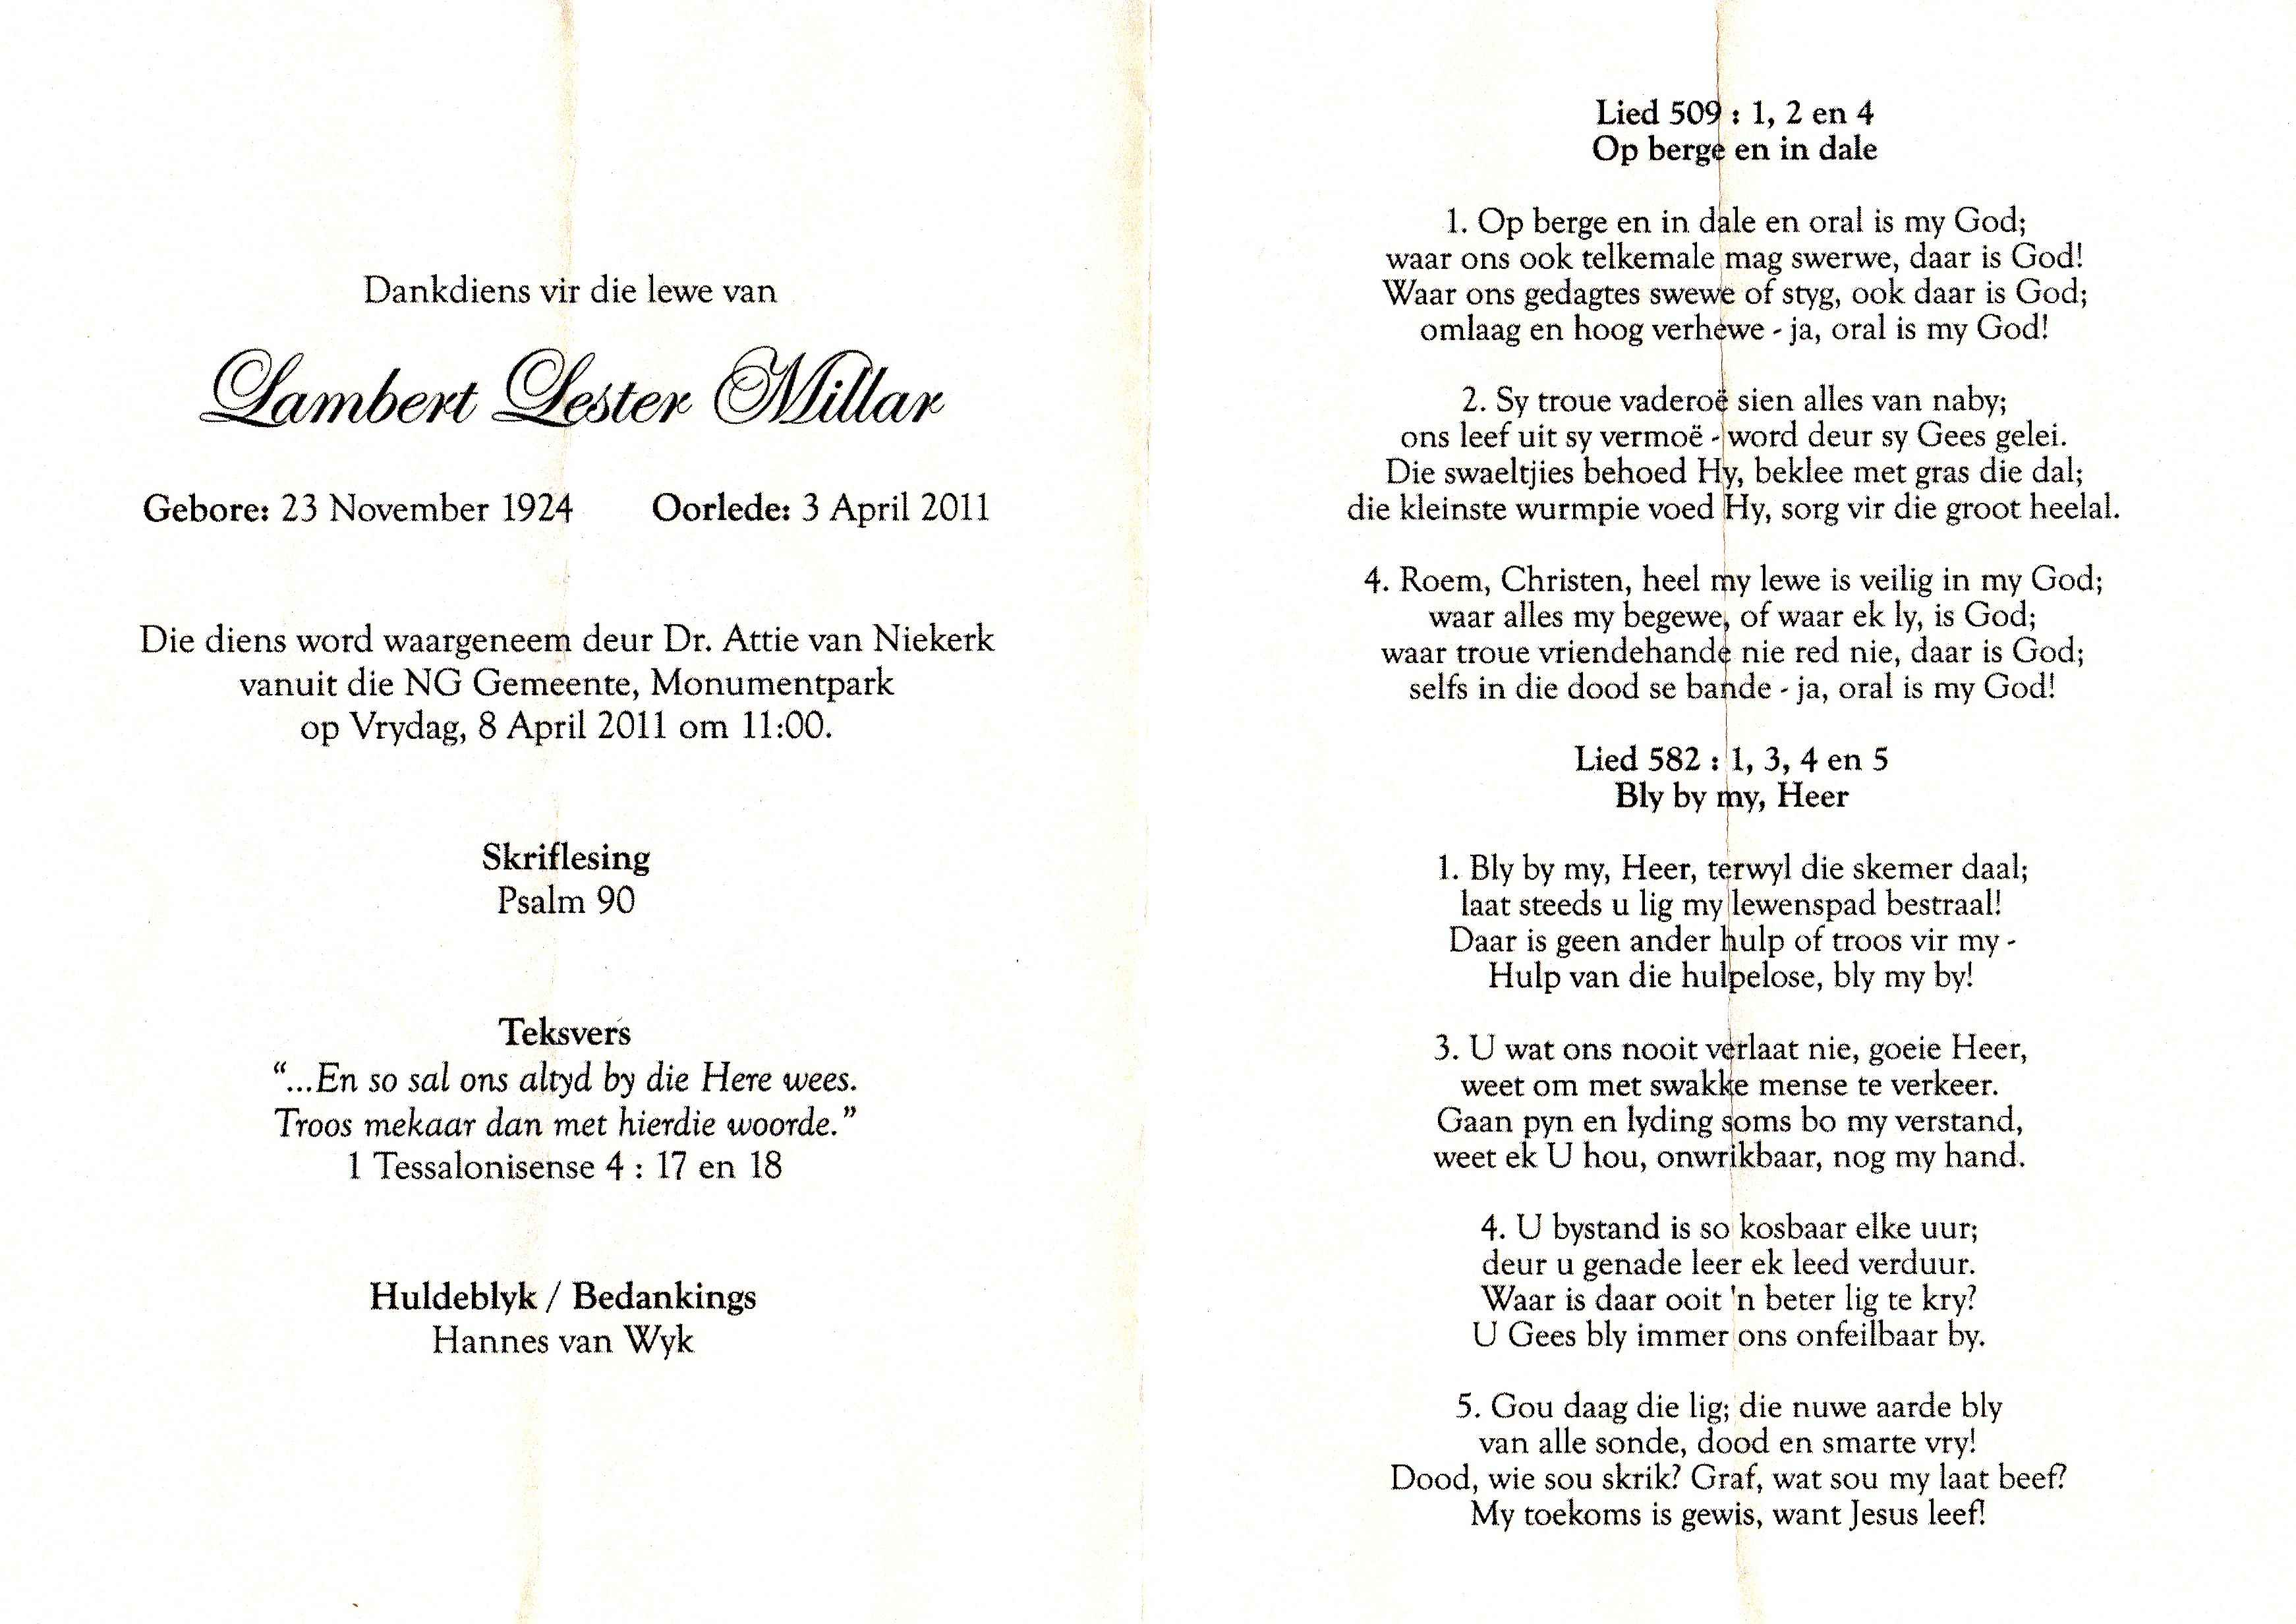 Dankdiens vir die lewe van
Lambert Lester Millar
Gebore: 23 November 1924 Oorlede: 3 April 2011
Die diens word waargeneem deur Dr. Attie van Niekerk
vanuit die NG Gemeente, Monumentpark
op Vrydag, 8 April 2011 om 11:00.
Skriflesing
Psalm 90
Teksvers
“...En so sal ons altyd by die Here wees.
Troos mekaar dan met hierdie woorde.”
1 Tessalonisense 4 : 17 en 18
Huldeblyk / Bedankings
Hannes van Wyk
Lied 509 : 1, 2 en 4
Op berge en in dale
1. Op berge en in dale en oral is my God;
waar ons ook telkemale mag swerwe, daar is God!
Waar ons gedagtes swewe of styg, ook daar is God;
omlaag en hoog verhewe - ja, oral is my God!
2. Sy troue vaderoë sien alles van naby;
ons leef uit sy vermoë - word deur sy Gees gelei.
Die swaeltjies behoed Hy, beklee met gras die dal;
die kleinste wurmpie voed Hy, sorg vir die groot heelal.
4. Roem, Christen, heel my lewe is veilig in my God;
waar alles my begewe, of waar ek ly, is God;
waar troue vriendehande nie red nie, daar is God;
selfs in die dood se bande - ja, oral is my God!
Lied 582 : 1, 3, 4 en 5
Bly by my, Heer
1. Bly by my, Heer, terwyl die skemer daal;
laat steeds u lig my lewenspad bestraal!
Daar is geen ander hulp of troos vir my -
Hulp van die hulpelose, bly my by!
3. U wat ons nooit verlaat nie, goeie Heer,
weet om met swakke mense te verkeer.
Gaan pyn en lyding soms bo my verstand,
weet ek U hou, onwrikbaar, nog my hand.
4. U bystand is so kosbaar elke uur;
deur u genade leer ek leed verduur.
Waar is daar ooit 'n beter lig te kry?
U Gees bly immer ons onfeilbaar by.
5. Gou daag die lig; die nuwe aarde bly
van alle sonde, dood en smarte vry!
Dood, wie sou skrik? Graf, wat sou my laat beef?
My toekoms is gewis, want Jesus leef!